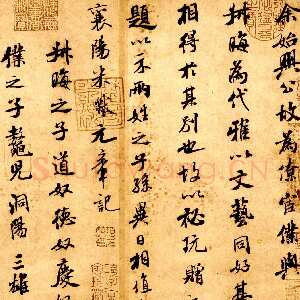 余始興公故為寮宦僕與
叔晦為代雅以文藝同好甚
相得於其別也故以秘玩贈
題以示兩姓之子孫異日相值
襄陽米黻元章記
叔晦之子道奴德奴慶奴
僕之子鰲兒洞陽三雄